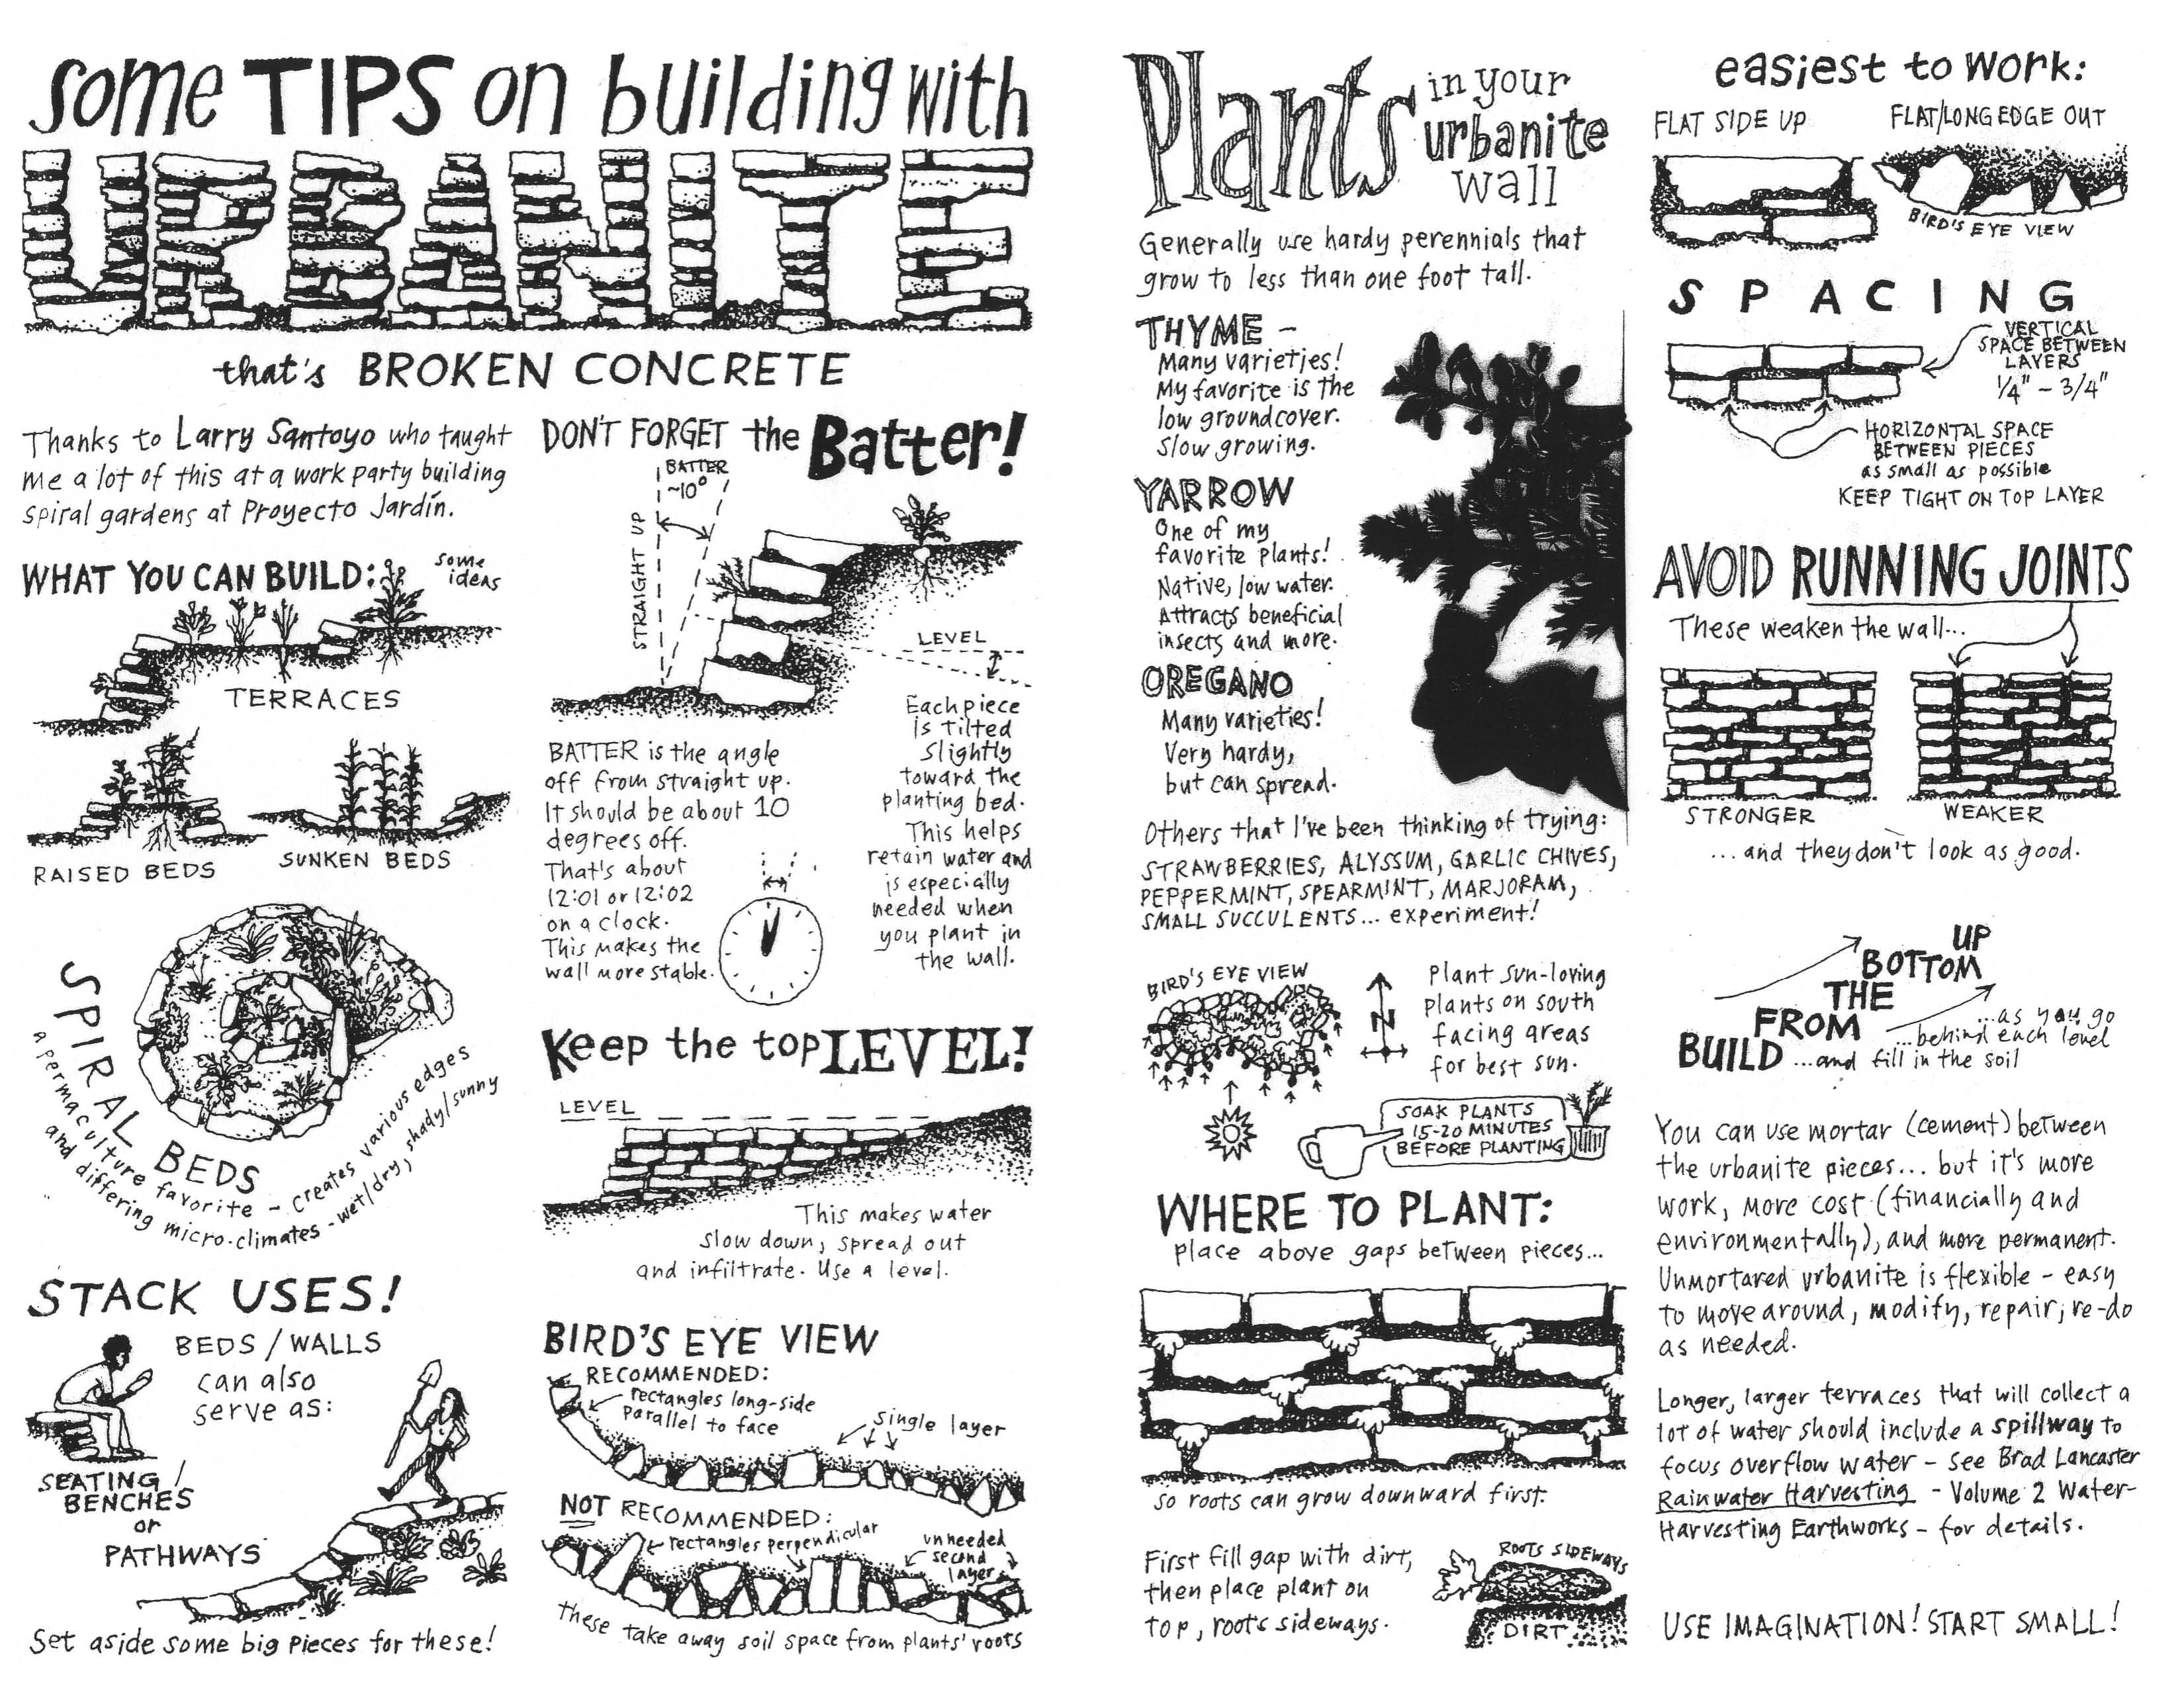 some TIPS on building with
URBANITE
that's BROKEN CONCRETE
Thanks to Larry Santoyo who taught
me a lot of this at a work party building
spiral gardens at Proyecto Jardín.
WHAT YOU CAN BUILD:
some
ideas
TERRACES
RAISED BEDS
SUNKEN BEDS
SPIRAL BEDS
a permaculture favorite - creates various edges
and differing micro-climates - wet/dry, shady/sunny
STACK USES!
BEDS / WALLS
can also
serve as:
SEATING /
BENCHES
or
PATHWAYS
Set aside some big pieces for these!
DON'T FORGET the Batter!
BATTER
~10°
STRAIGHT UP
LEVEL
Each piece
is tilted
slightly
toward the
planting bed.
This helps
retain water and
is especially
needed when
you plant in
the wall.
BATTER is the angle
off from straight up.
It should be about 10
degrees off.
That's about
12:01 or 12:02
on a clock.
This makes the
wall more stable.
Keep the top LEVEL!
LEVEL
This makes water
slow down, spread out
and infiltrate. Use a level.
BIRD'S EYE VIEW
RECOMMENDED:
rectangles long-side
parallel to face
single layer
NOT RECOMMENDED:
rectangles perpendicular
unneeded
second
layer
these take away soil space from plants' roots
Plants in your
urbanite
wall
Generally use hardy perennials that
grow to less than one foot tall.
THYME -
Many varieties!
My favorite is the
low groundcover.
Slow growing.
YARROW
One of my
favorite plants!
Native, low water.
Attracts beneficial
insects and more.
OREGANO
Many varieties!
Very hardy,
but can spread.
Others that I've been thinking of trying:
STRAWBERRIES, ALYSSUM, GARLIC CHIVES,
PEPPERMINT, SPEARMINT, MARJORAM,
SMALL SUCCULENTS... experiment!
BIRD'S EYE VIEW
N
Plant sun-loving
plants on south
facing areas
for best sun.
SOAK PLANTS
15-20 MINUTES
BEFORE PLANTING
WHERE TO PLANT:
place above gaps between pieces...
so roots can grow downward first.
First fill gap with dirt,
then place plant on
top, roots sideways.
ROOTS SIDEWAYS
DIRT
easiest to work:
FLAT SIDE UP
FLAT/LONG EDGE OUT
BIRD'S EYE VIEW
SPACING
VERTICAL
SPACE BETWEEN
LAYERS
1/4" - 3/4"
HORIZONTAL SPACE
BETWEEN PIECES
as small as possible
KEEP TIGHT ON TOP LAYER
AVOID RUNNING JOINTS
These weaken the wall...
STRONGER
WEAKER
...and they don't look as good.
BUILD
FROM
THE
BOTTOM
UP
...and fill in the soil
...behind each level
...as you go
You can use mortar (cement) between
the urbanite pieces... but it's more
work, more cost (financially and
environmentally), and more permanent.
Unmortared urbanite is flexible - easy
to move around, modify, repair, re-do
as needed.
Longer, larger terraces that will collect a
lot of water should include a spillway to
focus overflow water - see Brad Lancaster
Rainwater Harvesting - Volume 2 Water-
Harvesting Earthworks - for details.
USE IMAGINATION! START SMALL!